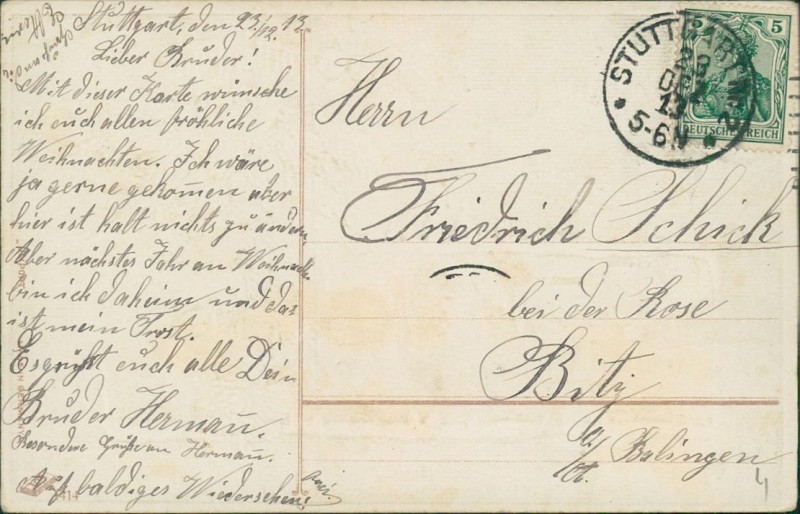 Stuttgart, den 23./12. 13.
Lieber Bruder!
Mit dieser Karte wünsche
ich euch allen fröhliche
Weihnachten. Ich wäre
ja gerne gekom̄en aber
hier ist halt nichts zu ändern
Aber nächstes Jahr an Weihnacht
bin ich daheim und das
ist mein Trost.
Es grüßt euch alle Dein
Bruder Herman̄.
Besondere Grüße an Herman̄.
Auf baldiges Wiedersehen!
Herrn
Friedrich Schick
bei der Rose
Bitz
O/A. Balingen
4
STUTTGART N. 2
23
DEZ
13
5-6N
5 5
DEUTSCHES REICH